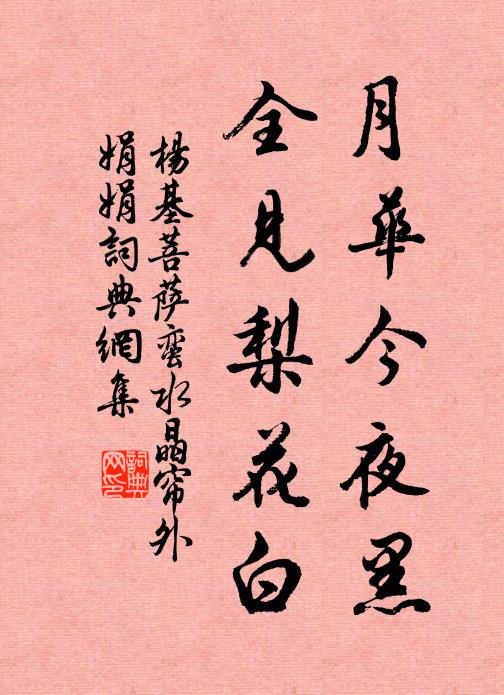 月華今夜黑
全見梨花白
楊基菩薩蛮水晶帘外
娟娟詞典網集
詞典
网印